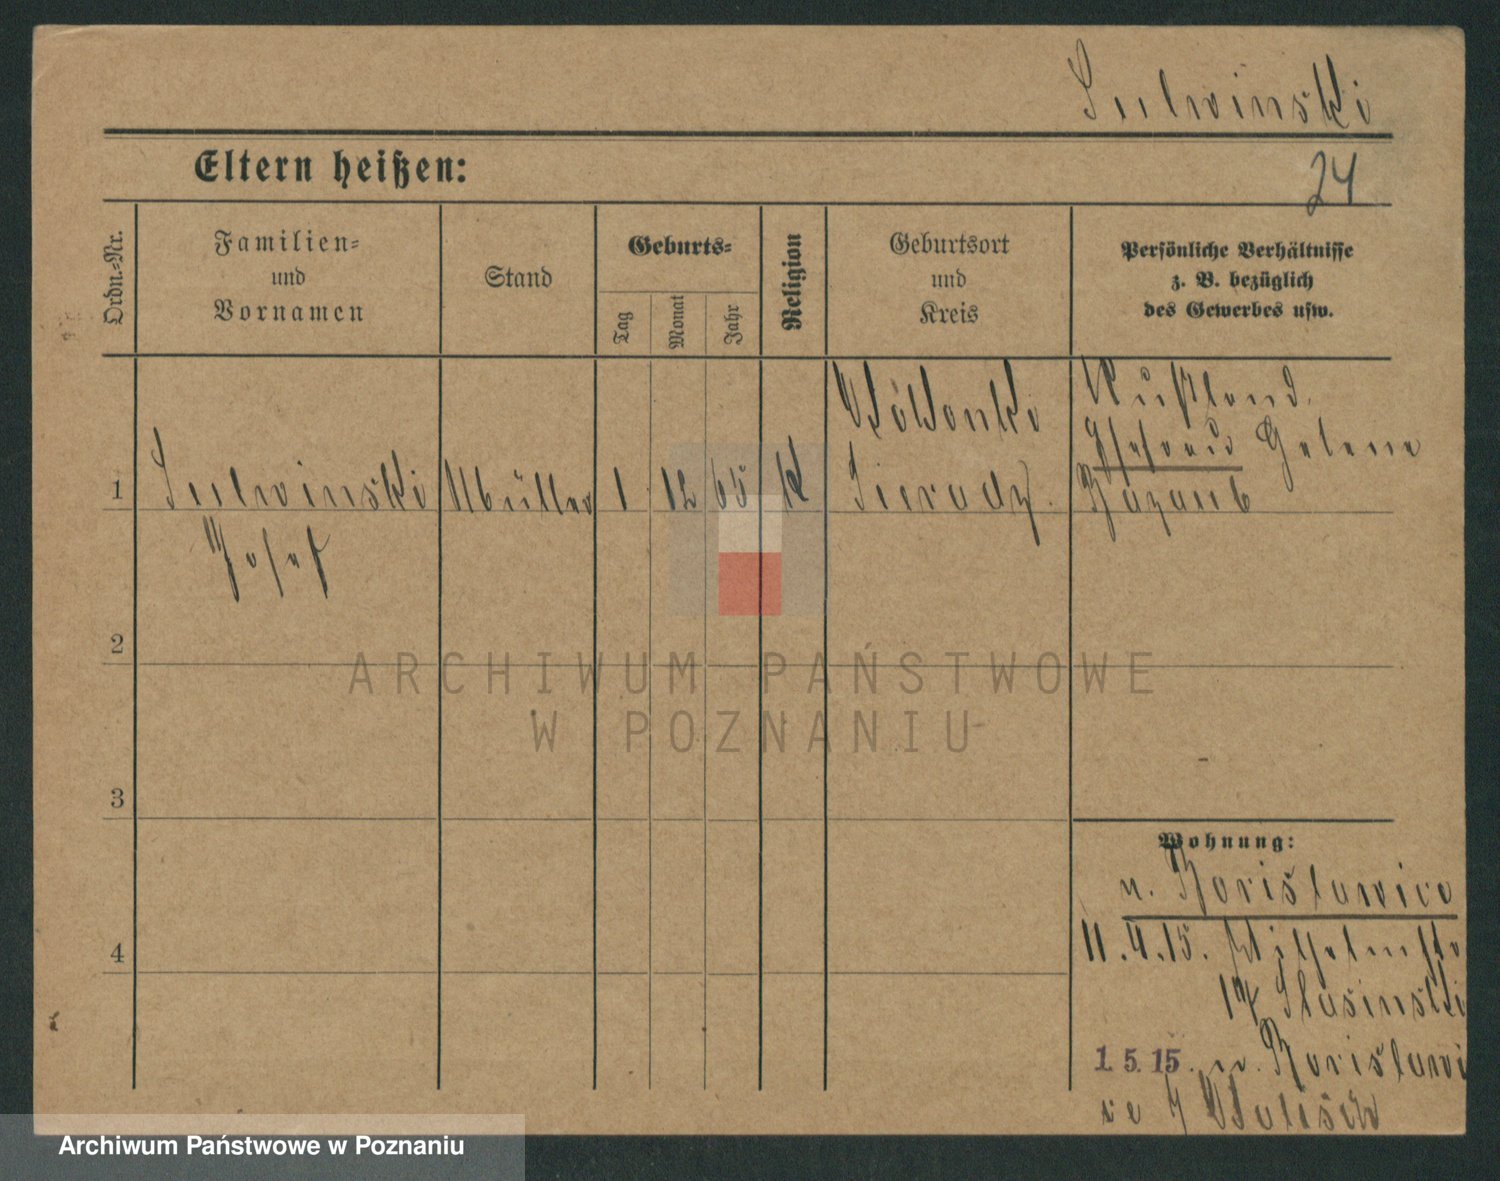 Sulwinski
Eltern heißen:
24
Ordn.=Nr.
Familien=
und
Vornamen
Stand
Geburts=
Tag
Monat
Jahr
Religion
Geburtsort
und
Kreis
Persönliche Verhältnisse
z. B. bezüglich
des Gewerbes usw.
1
Sulwinski
Josef
Müller
1
12
65
K
Sieradz.
Rußland.
Ehefrau
2
3
4
Wohnung:
n. Borislawice
11.4.15. Wilhelmstr
17
1.5.15. n. Borislawi
ce
ARCHIWUM PAŃSTWOWE
W POZNANIU
Archiwum Państwowe w Poznaniu